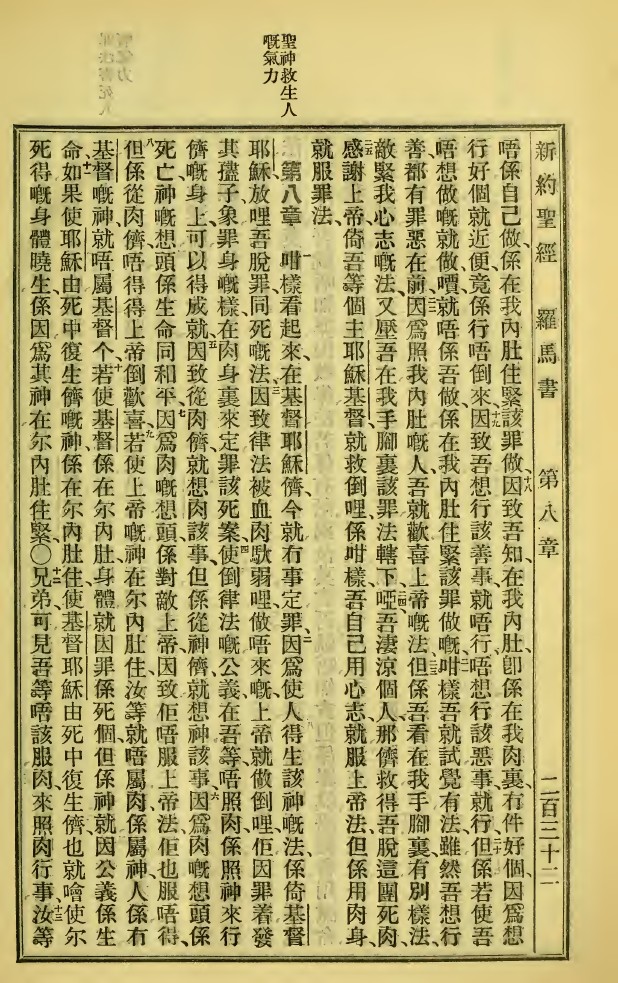 聖神救生人
嘅氣力
新約聖經 羅馬書 第八章 二百三十二
唔係自己做、係在我內肚住緊該罪做、十八因致吾知在我內肚、卽係在我肉裏、冇件好個、因爲想
行好個就近便、竟係行唔倒來、十九因致吾想行該善事就唔行、唔想行該惡事就行、二十但係若使吾
唔想做嘅就做嘪、就唔係吾做、係在我內肚住緊該罪做嘅、二一咁樣吾就試覺有法、雖然吾想行
善、都有罪惡在前、二二因爲照我內肚嘅人、吾就歡喜上帝嘅法、二三但係吾看在我手腳裏有別樣法、
敵緊我心志嘅法、又壓吾在我手腳裏該罪法轄下、二四啞、吾淒涼個人、那儕救得吾脫這團死肉、
二五感謝上帝、倚吾等個主耶穌基督、就救倒哩、係咁樣、吾自己用心志就服上帝法、但係用肉身、
就服罪法、
第八章 一咁樣看起來、在基督耶穌儕、今就冇事定罪、二因爲使人得生該神嘅法、係倚基督
耶穌放哩吾脫罪同死嘅法、三因致律法被血肉歇弱哩、做唔來嘅、上帝就做倒哩、佢因罪着發
其孻子象罪身嘅樣、在肉身裏來定罪該死案、四使倒律法嘅公義、在吾等唔照肉係照神來行
儕嘅身上、可以得成就、五因致從肉儕就想肉該事、但係從神儕就想神該事、六因爲肉嘅想頭係
死亡、神嘅想頭係生命同和平、七因爲肉嘅想頭係對敵上帝、因致佢唔服上帝法、佢也服唔得、
八但係從肉儕唔得得上帝倒歡喜、九若使上帝嘅神在尔內肚住、汝等就唔屬肉、係屬神、人係冇
基督嘅神、就唔屬基督个、十若使基督係在尔內肚、身體就因罪係死個、但係神就因公義係生
命、十一如果使耶穌由死中復生儕嘅神、係在尔內肚住、使基督耶穌由死中復生儕、也就噲使尔
死得嘅身體曉生、係因爲其神在尔內肚住緊、〇十二兄弟、可見吾等唔該服肉來照肉行事、十三汝等